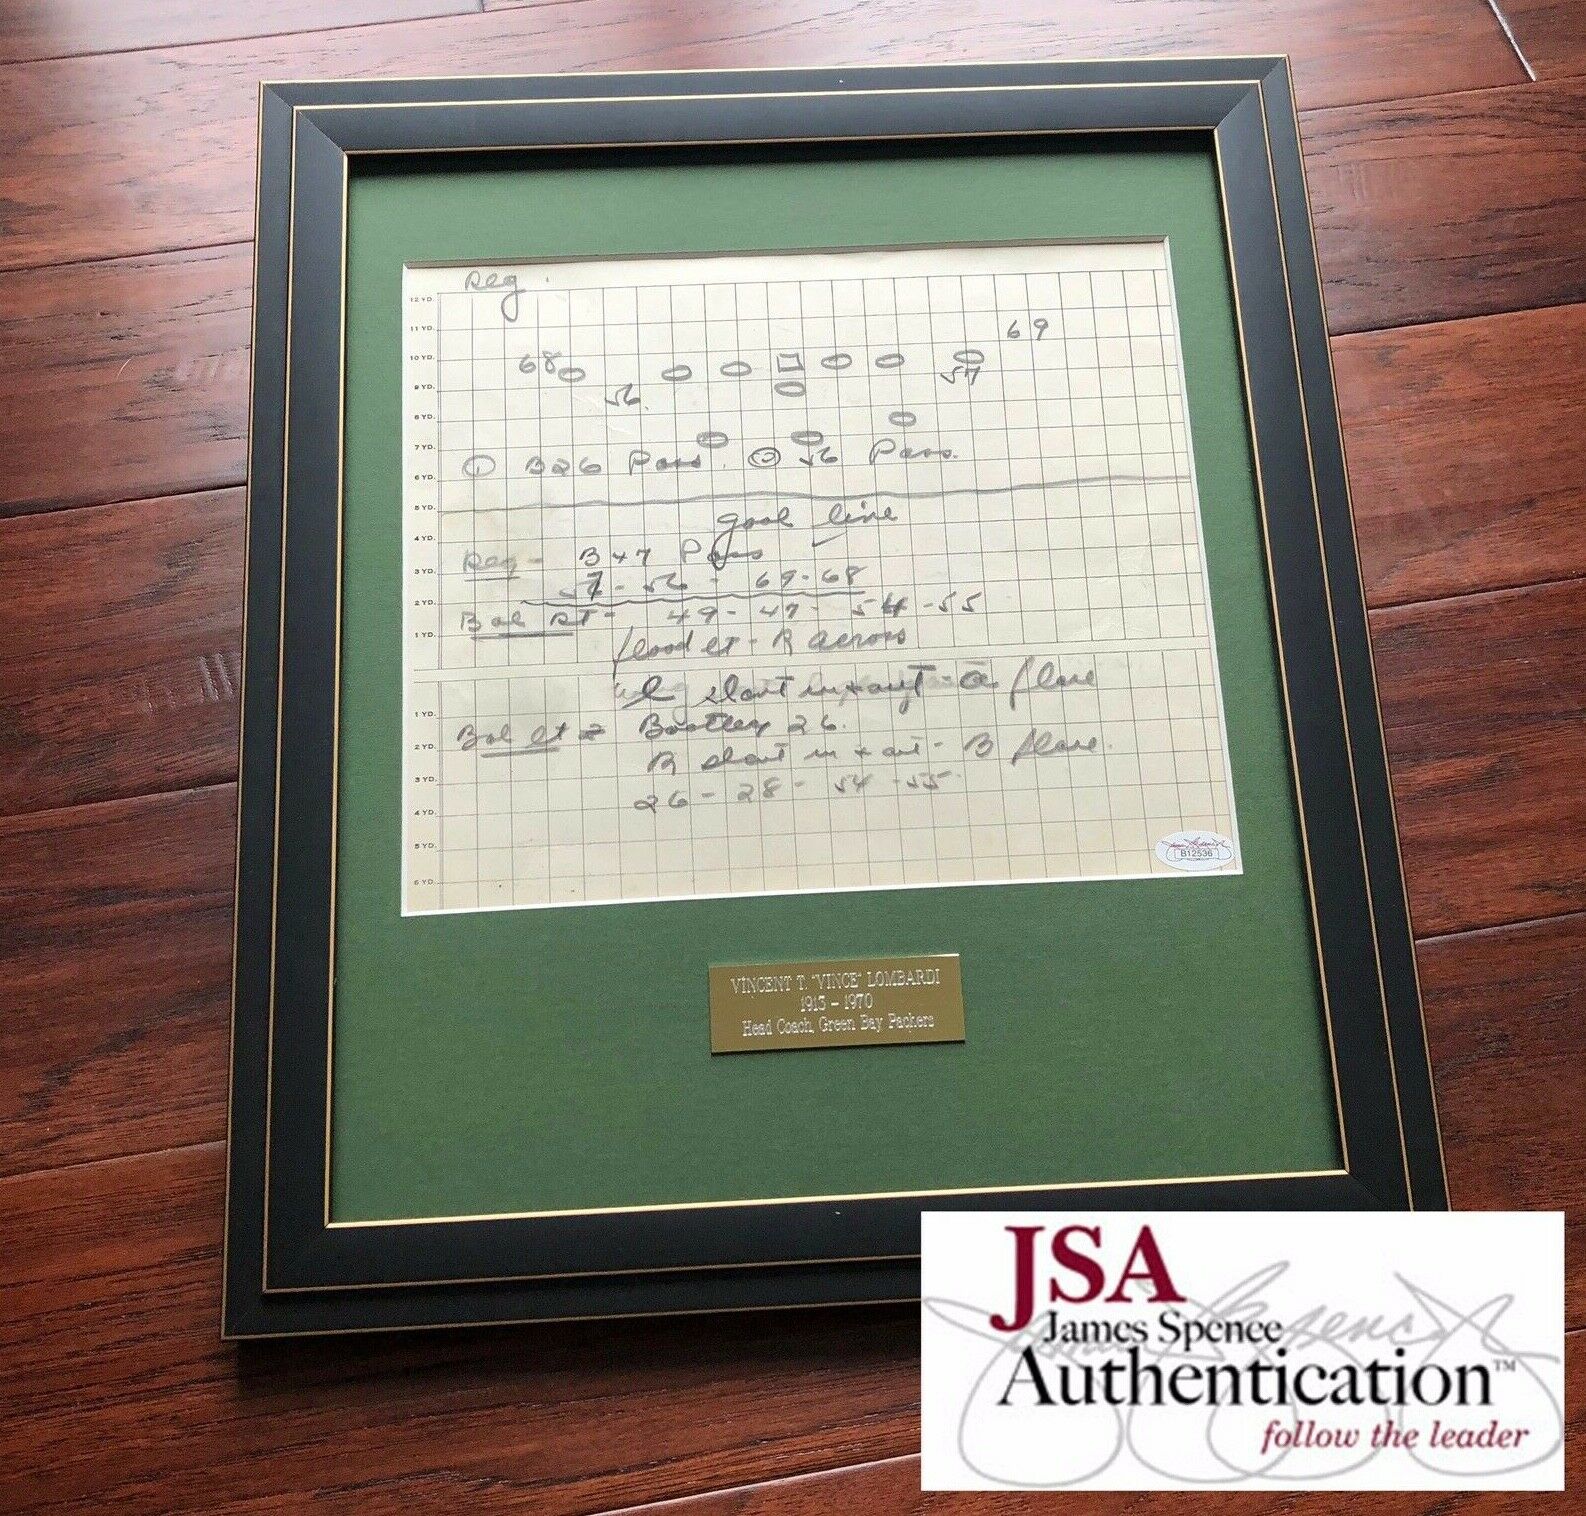 Reg.
12 YD.
11 YD.
69
10 YD.
68
9 YD.
57
56
8 YD.
7 YD.
① B26 Pass. ② 56 Pass.
6 YD.
5 YD.
goal line
4 YD.
Reg - B47 Pass
3 YD.
57 - 56 - 69 - 68
2 YD.
Rt - 49 - 47 - 54 - 55
1 YD.
flood lt - R across
L slant in + out - flare
1 YD.
lt = Bootleg 26.
2 YD.
R slant in + out - B flare.
3 YD.
26 - 28 - 54 - 55
4 YD.
5 YD.
6 YD.
B12536
VINCENT T. "VINCE" LOMBARDI
1913 - 1970
Head Coach, Green Bay Packers
JSA
James Spence
Authentication™
follow the leader